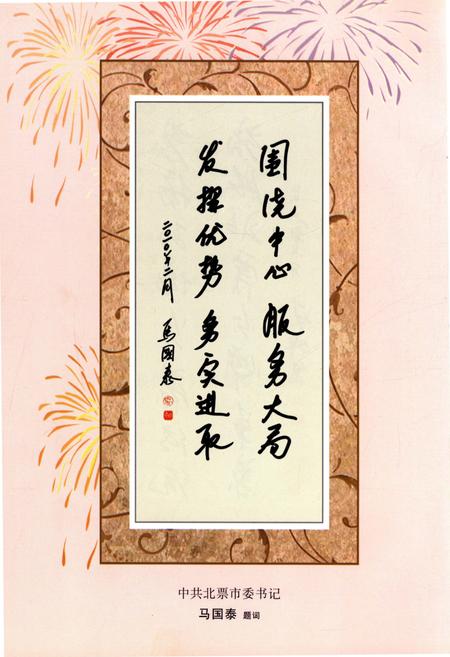 围绕中心 服务大局
发挥优势 务实进取
二〇一〇年二月 马國泰
中共北票市委书记
马国泰 题词